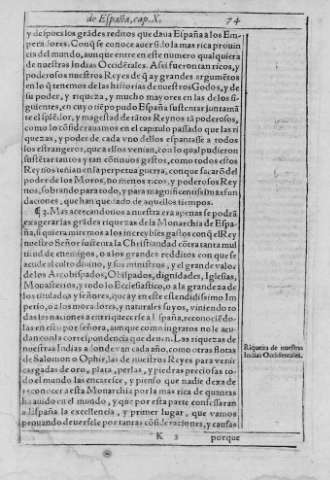 de España, cap. X. 74
y despocs los grādes reditos que daua España a los Em-
peradores. Conq̃ se conoce auer sido la mas rica prouin
cia del mundo, aunque entre en este numero qualquiera
de nuestras Indias Occidētales. Assi fueron tan ricos, y
poderosos nuestros Reyes de q̃ ay grandes argumētos
en lo q̃ tenemos de las historias de nuestros Godos, y de
su poder, y riqueza, y mucho mayores en las de los si-
guientes, en cuyo tiēpo pudo España sustentar juntamē
te el splēdor, y magestad de tātos Reynos tā poderosos,
como lo cōsiderauamos en el capitulo passado que las ri
quezas, y poder de cada vno dellos espantasse a todos
los estrangeros, que a ellos venian, con lo qual pudieron
sustētar tantos y tan cōtinuos gastos, como todos estos
Reynos tenian en la perpetua guerra, con que sacarō del
poder de los Moros, no menos ricos, y poderosos Rey
nos, sobrando para todo, y para magnificentissimas fun
daciones, que han quedado de aquellos tiempos.
¶ 3. Mas acercandonos a nuestra era apenas se podrā
exagerar las grādes riquezas de la Monarchia de Espa-
ña, si quiera miremos a los increybles gastos con q̃ el Rey
nuestro Señor sustenta la Christiandad cōtra tanta mul
titud de enemigos, o a los grandes redditos con que se
acude al culto diuino, y sus ministros, y el grande valor
de los Arçobispados, Obispados, dignidades, Iglesias,
Monasterios, y todo lo Ecclesiastico, o a la grandeza de
los titulados y señores, que ay en este esplendidissimo Im
perio, o a los moradores, y naturales suyos, viniendo to
das las naciones a enriquecerse a España, reconociēdo-
las en esto por señora, aunque como ingratos no le acu-
dan con la correspondencia que deuen. Las riquezas de
nuestras Indias a donde van cada año, como otras flotas
de Salomon o Ophir, las de nuestros Reyes para venir
cargadas de oro, plata, perlas, y piedras preciosas to-
do el mundo las encarece, y pienso que nadie dexa de
reconocer a esta Monarchia por la mas rica de quantas
ha auido en el mundo, y que por esta parte confessaran
a España la excellencia, y primer lugar, que vamos
prouando deuersele por tantas cōsideraciones, y causas
Riqueza de nuestras
Indias Occidentales.
K 2 porque